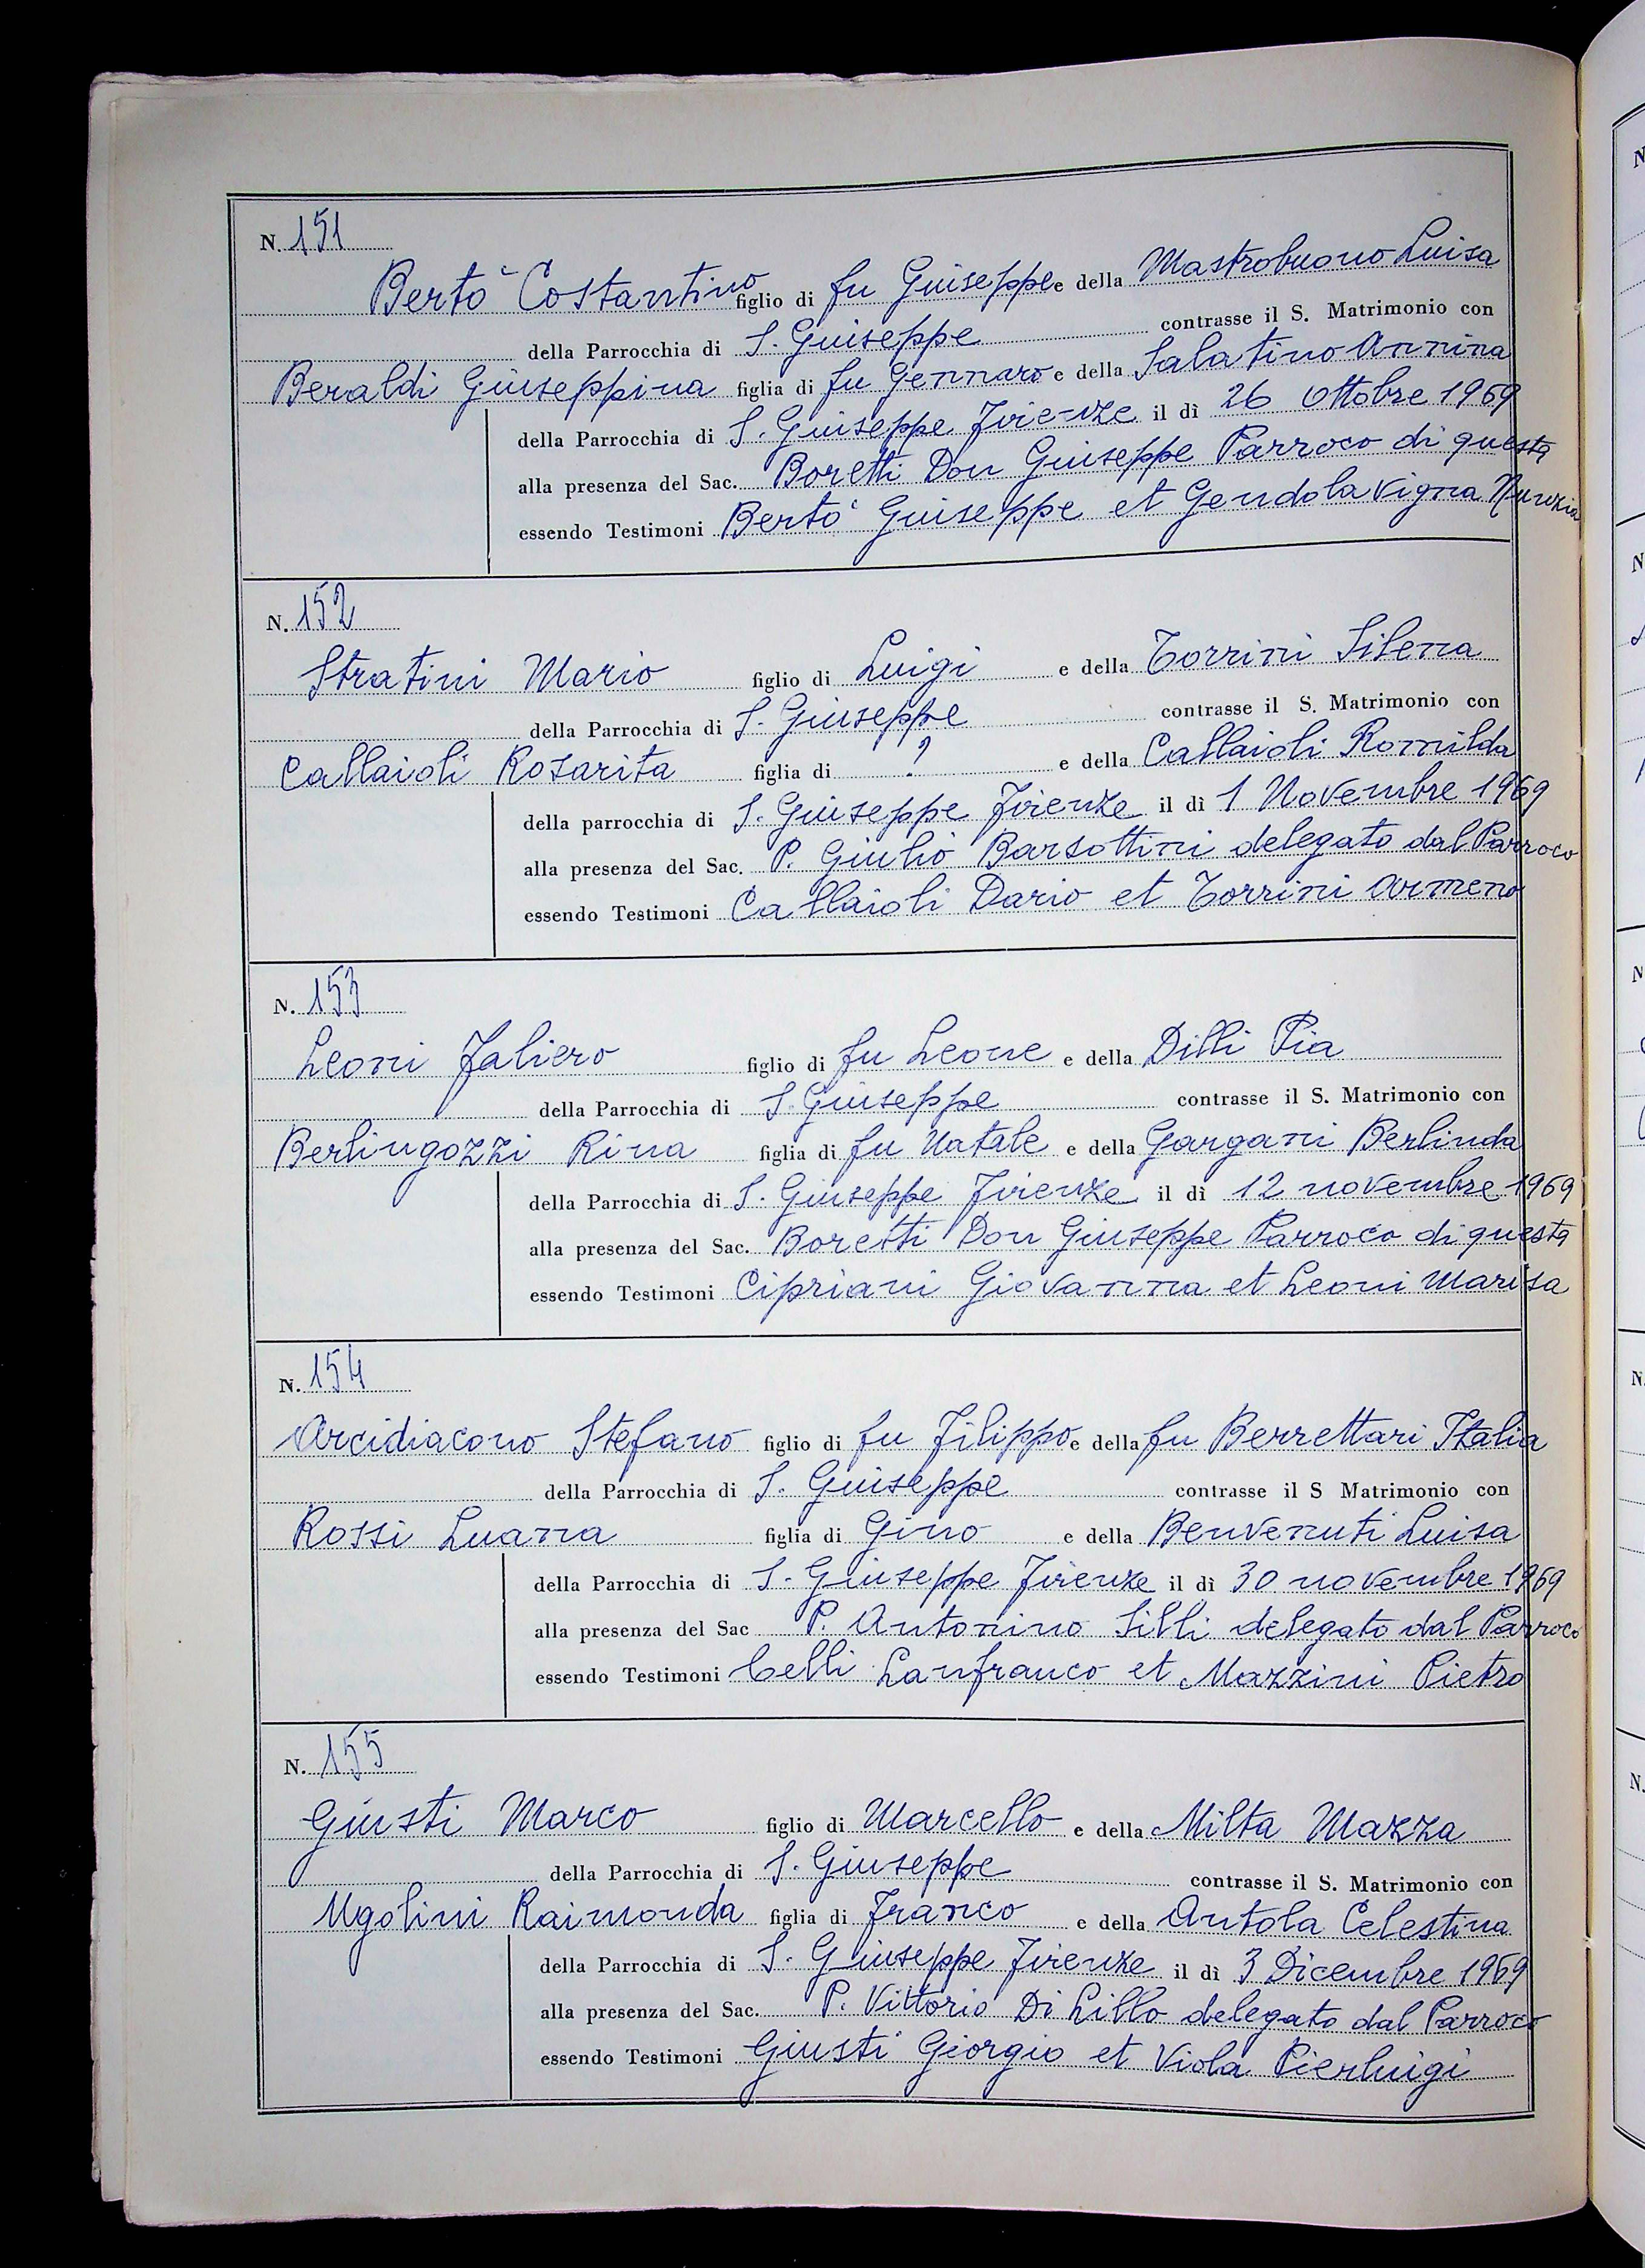 N. 151
Bertò Costantino figlio di fu Giuseppe e della Mastrobuono Luisa
della Parrocchia di S. Giuseppe contrasse il S. Matrimonio con
Beraldi Giuseppina figlia di fu Gennaro e della Salatino Annina
della Parrocchia di S. Giuseppe Firenze il dì 26 Ottobre 1969
alla presenza del Sac. Boretti Don Giuseppe Parroco di questa
essendo Testimoni Bertò Giuseppe et Gendola Vigna Nunzia
N. 152
Stratini Mario figlio di Luigi e della Torrini Silena
della Parrocchia di S. Giuseppe contrasse il S. Matrimonio con
Callaioli Rosarita figlia di ? e della Callaioli Romilda
della parrocchia di S. Giuseppe Firenze il dì 1 Novembre 1969
alla presenza del Sac. P. Giulio Barsottini delegato dal Parroco
essendo Testimoni Callaioli Dario et Torrini Armeno
N. 153
Leoni Faliero figlio di fu Leone e della Dilli Pia
della Parrocchia di S. Giuseppe contrasse il S. Matrimonio con
Berlingozzi Rina figlia di fu Natale e della Gargani Berlinda
della Parrocchia di S. Giuseppe Firenze il dì 12 novembre 1969
alla presenza del Sac. Boretti Don Giuseppe Parroco di questa
essendo Testimoni Cipriani Giovanna et Leoni Marisa
N. 154
Arcidiacono Stefano figlio di fu Filippo e della fu Berrettari Italia
della Parrocchia di S. Giuseppe contrasse il S Matrimonio con
Rossi Luana figlia di Gino e della Benvenuti Luisa
della Parrocchia di S. Giuseppe Firenze il dì 30 novembre 1969
alla presenza del Sac P. Antonino Silli delegato dal Parroco
essendo Testimoni Celli Lanfranco et Mazzini Pietro
N. 155
Giusti Marco figlio di Marcello e della Milta Mazza
della Parrocchia di S. Giuseppe contrasse il S. Matrimonio con
Ugolini Raimonda figlia di Franco e della Antola Celestina
della Parrocchia di S. Giuseppe Firenze il dì 3 Dicembre 1969
alla presenza del Sac. P. Vittorio Di Lillo delegato dal Parroco
essendo Testimoni Giusti Giorgio et Viola Pierluigi